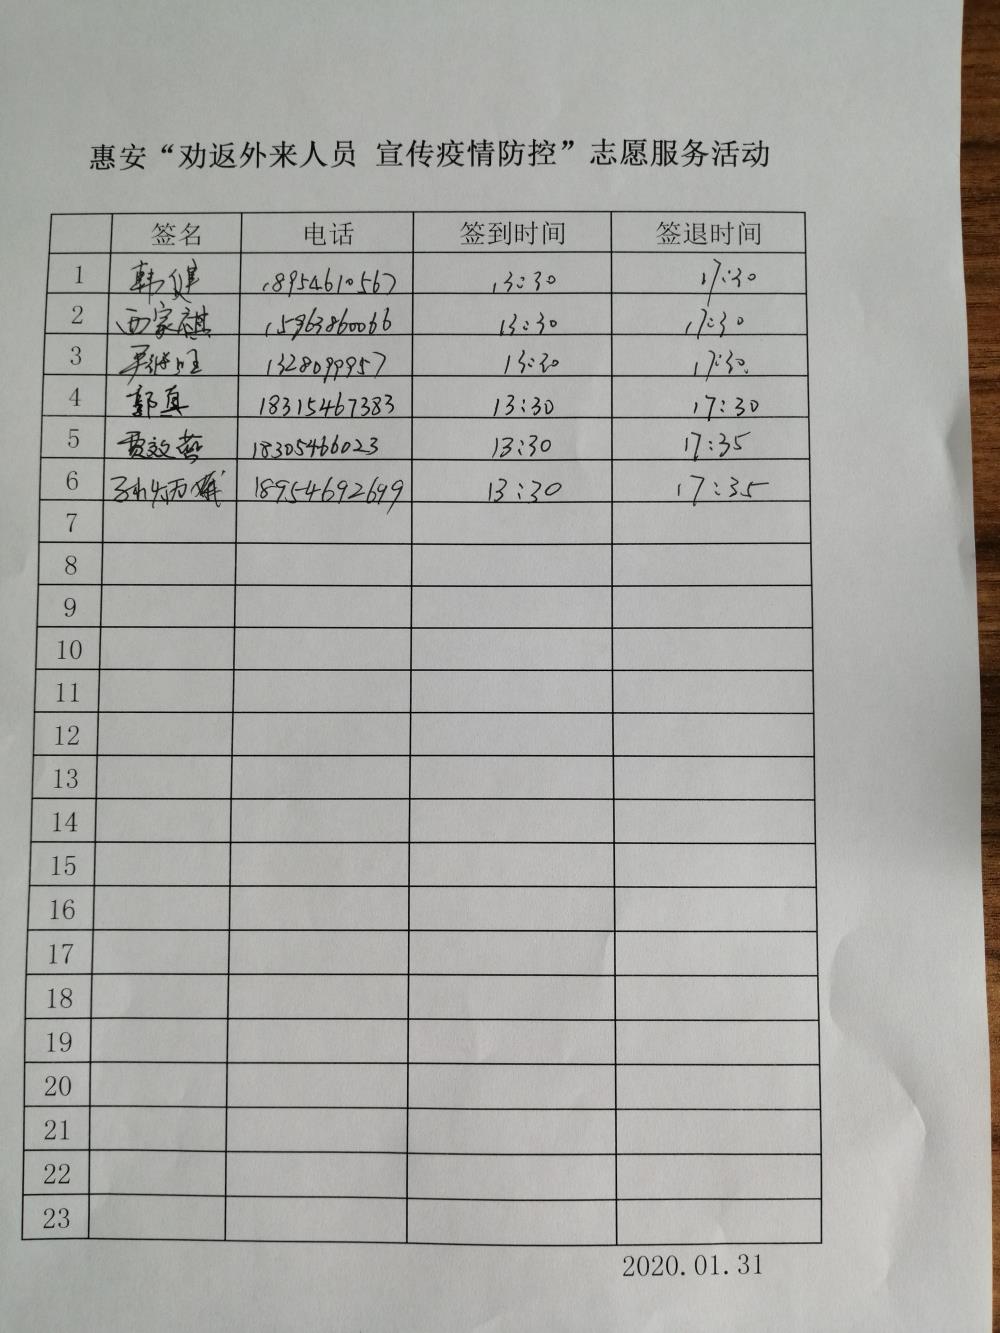 惠安“劝返外来人员 宣传疫情防控”志愿服务活动
签名 电话 签到时间 签退时间
1 韩健 18954610567 13:30 17:30
2 西家麒 15963860066 13:30 17:30
3 13:30 17:30
4 郭真 18315467383 13:30 17:30
5 贾效燕 18305466023 13:30 17:35
6 18954692699 13:30 17:35
7
8
9
10
11
12
13
14
15
16
17
18
19
20
21
22
23
2020.01.31